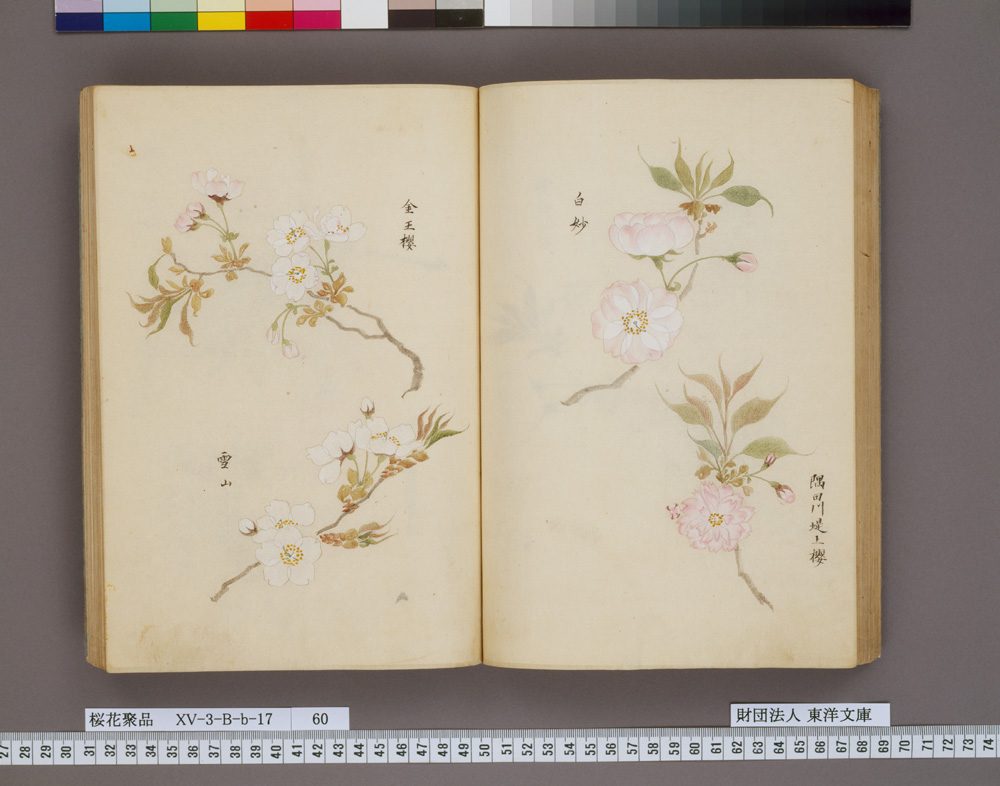 白妙
隅田川堤上櫻
金王櫻
雪山
桜花聚品 XV-3-B-b-17 60
財団法人 東洋文庫
27 28 29 30 31 32 33 34 35 36 37 38 39 40 41 42 43 44 45 46 47 48 49 50 51 52 53 54 55 56 57 58 59 60 61 62 63 64 65 66 67 68 69 70 71 72 73 74